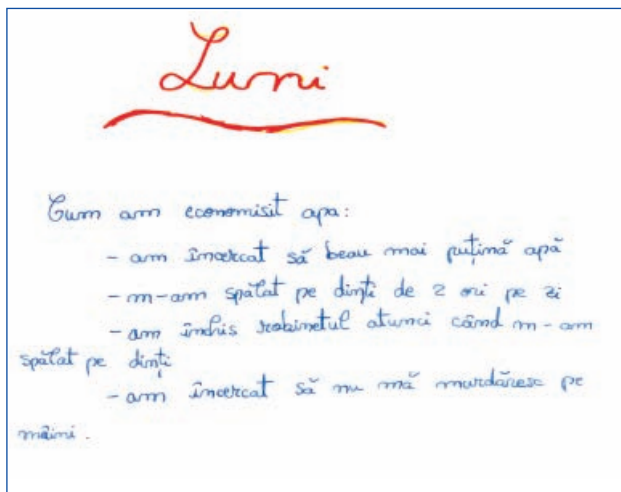 Luni
Cum am economisit apa:
- am încercat să beau mai puțină apă
- m-am spălat pe dinți de 2 ori pe zi
- am închis robinetul atunci când m-am
spălat pe dinți
- am încercat să nu mă murdăresc pe
mâini.